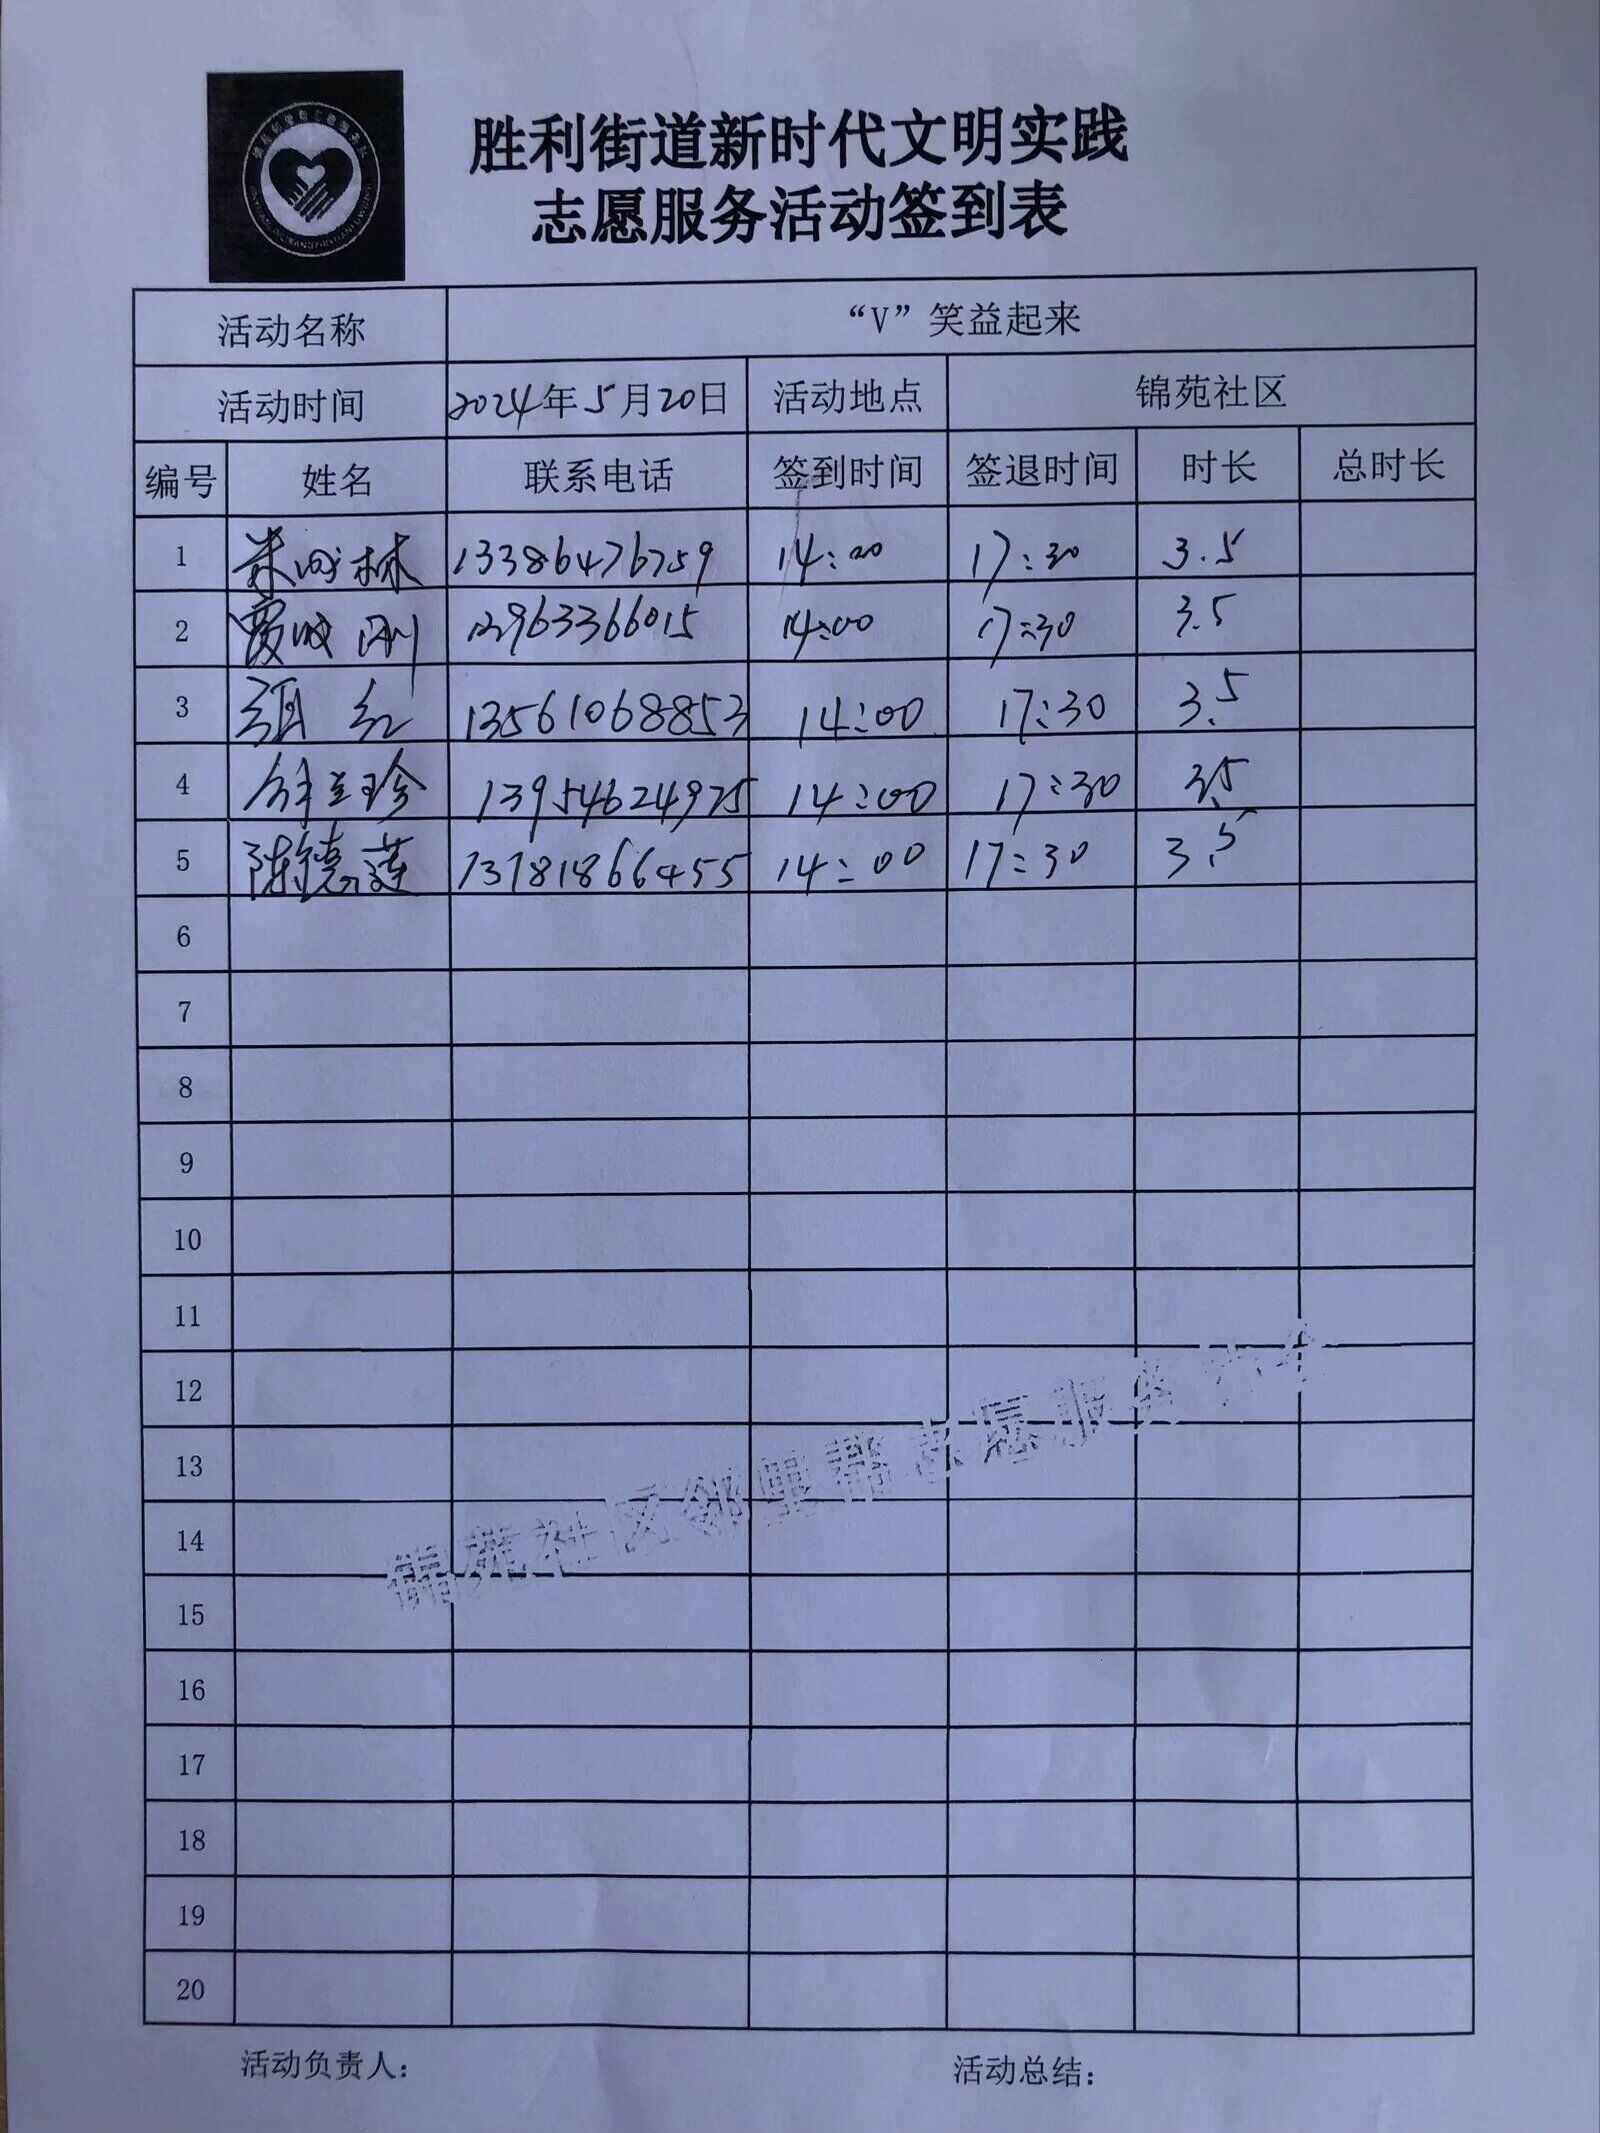 胜利街道新时代文明实践
志愿服务活动签到表
活动名称 “V”笑益起来
活动时间 2024年5月20日 活动地点 锦苑社区
编号 姓名 联系电话 签到时间 签退时间 时长 总时长
1 林 13386476759 14:00 17:30 3.5
2 刚 963366015 14:00 17:30 3.5
3 红 13561068853 14:00 17:30 3.5
4 珍 13954624975 14:00 17:30 3.5
5 陈德莲 13781866455 14:00 17:30 3.5
6
7
8
9
10
11
12
13
14
15
16
17
18
19
20
锦苑社区邻里帮志愿服务协会
活动负责人：
活动总结：